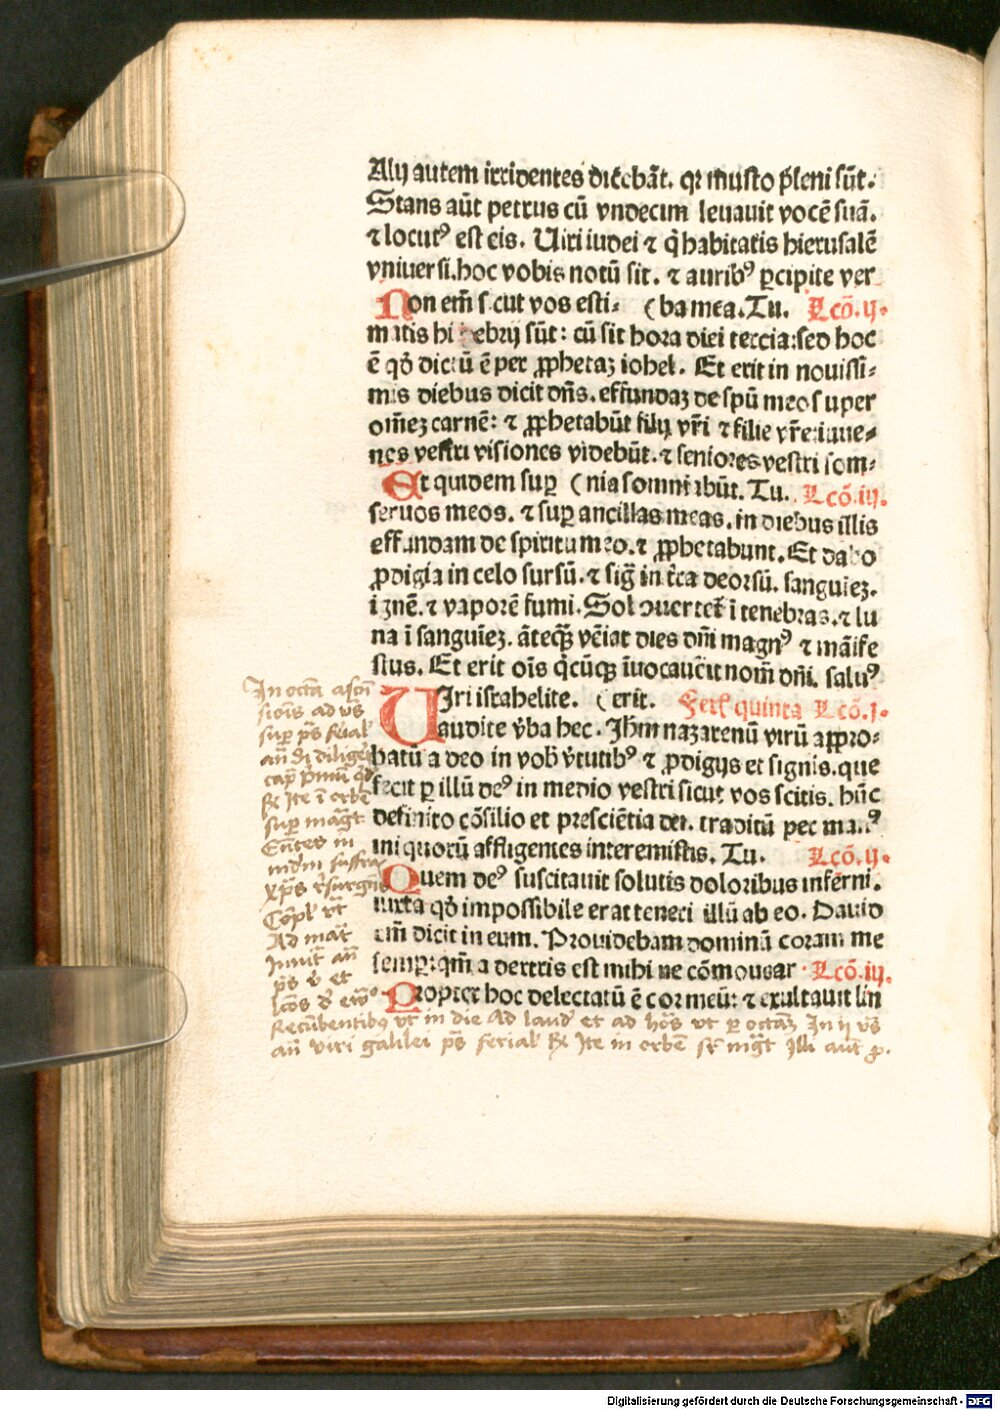 Alij autem irridentes dicebāt. qꝛ musto p̄leni sūt.
Stans aūt petrus cū vndecim leuauit vocē suā.
⁊ locutꝰ est eis. Uiri iudei ⁊ q̇ habitatis hierusalē
vniuersi. hoc vobis notū sit. ⁊ auribꝰ ꝑcipite ver
Non em̄ sicut vos esti⸗ (ba mea. Tu. Lcō. ij.
matis hi hebrij sūt: cū sit hora diei tercia: sed hoc
ē qd̄ dictū ē per ꝓphetaꝫ iohel. Et erit in nouissi⸗
mis diebus dicit dn̄s. effundaꝫ de spū meo super
om̄eꝫ carnē: ⁊ ꝓphetabūt filij vr̄i ⁊ filie vr̄e: iuue⸗
nes vestri visiones videbūt. ⁊ seniores vestri som⸗
Et quidem suꝑ (nia somniabūt. Tu. Lcō. iij.
seruos meos. ⁊ suꝑ ancillas meas. in diebus illis
effundam de spiritu meo. ⁊ ꝓphetabunt. Et dabo
ꝓdigia in celo sursū. ⁊ siḡ in t̄ra deorsū. sanguieꝫ.
ignē. ⁊ vaporē fumi. Sol ꝯuertet̄ ī tenebras. ⁊ lu
na ī sanguīeꝫ. āteqꝫ vēiat dies dn̄i magnꝰ ⁊ māife
stus. Et erit oīs q̇cūqꝫ īuocauerit nom̄ dn̄i. saluꝰ
UIri israhelite. (erit. Ferꝭ quinta Lcō. j.
audite v̄ba hec. Jhm̄ nazarenū virū appro⸗
batū a deo in vob̄ v̄tutibꝰ ⁊ ꝓdigijs et signis. que
fecit ꝑ illū deꝰ in medio vestri sicut vos scitis. hūc
definito cōsilio et presciētia dei. traditū per manꝰ
iniquorū affligentes interemistis. Tu. Lcō. ij.
Quem deꝰ suscitauit solutis doloribus inferni.
iuxta qd̄ impossibile erat teneri illū ab eo. Dauid
em̄ dicit in eum. Prouidebam dominū coram me
semꝑ: qm̄ a dextris est mihi ne cōmouear. Lcō. iij.
Propter hoc delectatū ē cor meū: ⁊ exultauit lin
In octa ascn̄
sionis ad vs̄
suꝑ ps̄ ferial
an̄
suꝑ maḡt
Ad mat̄
Inuit̄ an̄
ps̄ v̄ et
Recūbentibꝰ vt in die Ad laud̄ et ad ho̅s vt ꝑ octaꝫ In ij vs̄
an̄ viri galilei ps̄ ferial R̄ Ite in orbē sr̄ mḡt Illi aut̄ ꝓ.
Digitalisierung gefördert durch die Deutsche Forschungsgemeinschaft - DFG